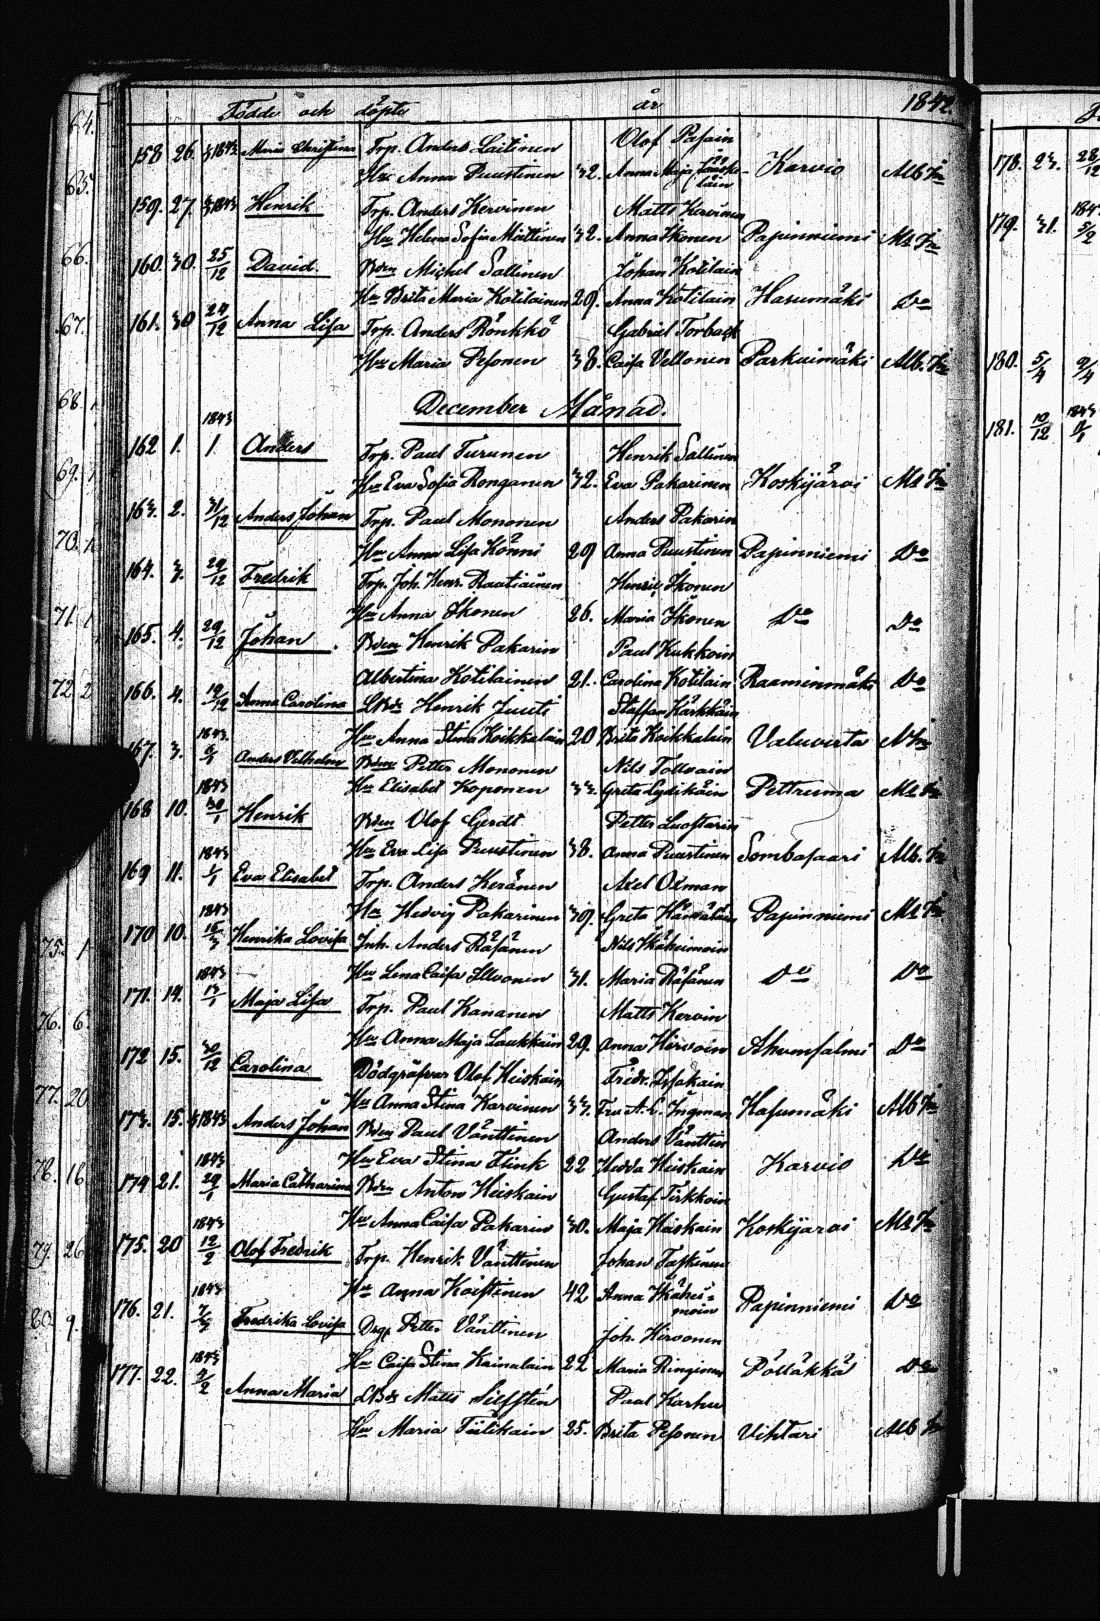 Födde och döpte år 1842.
158 26. 1843. Maria Christina Trp. Anders Laitinen Olof Pasain
Hu Anna Puustinen 32. Anna Maja Karvio Alb
159. 27. 1843 Henrik Trp. Anders Kervinen Matts Kervinen
Hu Helena Sofia Miettinen 32. Anna Ikonen Papinniemi
160. 30. 25/12 David Bdn Michel Sallinen Johan Kotilain
Hu Brita Maria Kotilainen 29. Anna Kotilain Hasumäki Do
161. 30 27/12 Anna Lisa Trp. Anders Rönkkö Gabriel Torback
Hu Maria Pesonen 38. Caisa Vellonen Parkuimäki Alb.
December Månad.
1843
162 1. 1 Anders Trp. Paul Turunen Henrik Sallinen
Hu Eva Sofia Ronganen 32. Eva Pakarinen Koskijärvi
163. 2. 31/12 Anders Johan Trp. Paul Mononen Anders Pakarin
Hu Anna Lisa Könni 29 Anna Puustinen Papinniemi Do
164. 3. 29/12 Fredrik Trp. Joh. Henr. Rautiainen Henric Ikonen
Hu Anna Ikonen 26. Maria Ikonen Do Do
165. 4. 29/12 Johan Bdn Henrik Pakarin Paul Kukkoin
Albertina Kotilainen 21. Carolina Kotilain Raaminmäki Do
166. 4. 19/12 Anna Carolina Henrik Juuti Staffan Kärkkäin
1843. Hu Anna Stina Koikkalain 20 Brita Koikkalain Valuvirta
167. 3. 6/1 Anders Vilhelm Bdn Petter Mononen Nils Tolvain
1843 Hu Elisabet Koponen 33. Greta Lydikäin Pettruma
168 10. 30/1 Henrik Bdn Olof Gerdt Petter Luostarin
1843 Hu Eva Lisa Puustinen 38. Anna Puustinen Sombasaari Alb.
169 11. 1/1 Eva Elisabet Trp. Anders Keränen Axel Öhman
1843 Hu Hedvig Pakarinen 39. Greta Papinniemi
170 10. Henrika Lovisa Inh. Anders Räsänen Nils Ikäheimoin
1843 Hu Lena Caisa Ilvonen 31. Maria Räsänen Do Do
171. 14. 13/1 Maja Lisa Trp. Paul Kananen Matts Kervin
Hu Anna Maja Laukkain 29. Anna Hirvoin Ahvensalmi Do
172 15. 30/12 Carolina Dödgräfvar Olof Heiskain Fridr. Issakain
Hu Anna Stina Karvinen 33. Fru A. C. Ingman Hasumäki Alb
173. 15. 1843 Anders Johan Bdn Paul Vänttinen Anders Vänttin
1843 Hu Eva Stina Flink 22 Hedda Heiskain Karvio Do
174 21. 29/1 Maria Catharina Bdn Anton Heiskain Gustaf Tirkkoin
1843 Hu Anna Caisa Pakarin 30. Maja Heiskain Koskijärvi
175. 20 12/2 Olof Fredrik Trp. Henrik Vänttinen Johan Taskinen
1843 Hu Anna Koistinen 42 Anna Ikähei-moin Papinniemi Do
176. 21. 7/3 Fredrika Lovisa Drg. Petter Vänttinen Joh. Hirvonen
1843 Hu Caisa Stina Kainulain 22 Maria Ringinen Pölläkkä Do
177. 22. 2/2 Anna Maria Matts Silfstén Paul Karhu
Hu Maria Tiilikain 25. Brita Pesonen Vihtari Alb
178. 23. 28/12
179. 31. 1843 5/2
180. 5/4 9/4
181. 10/12 1843